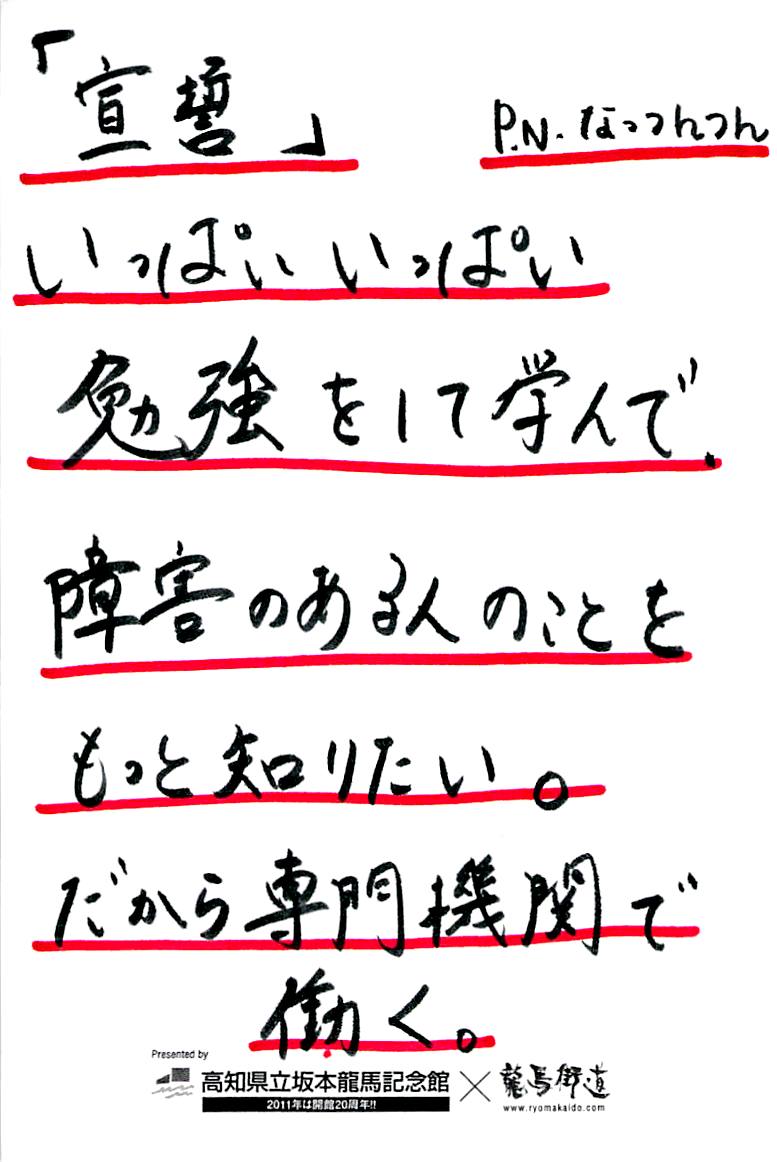 「宣誓」 P.N. なっつんつん
いっぱいいっぱい
勉強をして学んで、
障害のある人のことを
もっと知りたい。
だから専門機関で
働く。
Presented by
高知県立坂本龍馬記念館 × 龍馬街道
2011年は開館20周年!!
www.ryomakaido.com